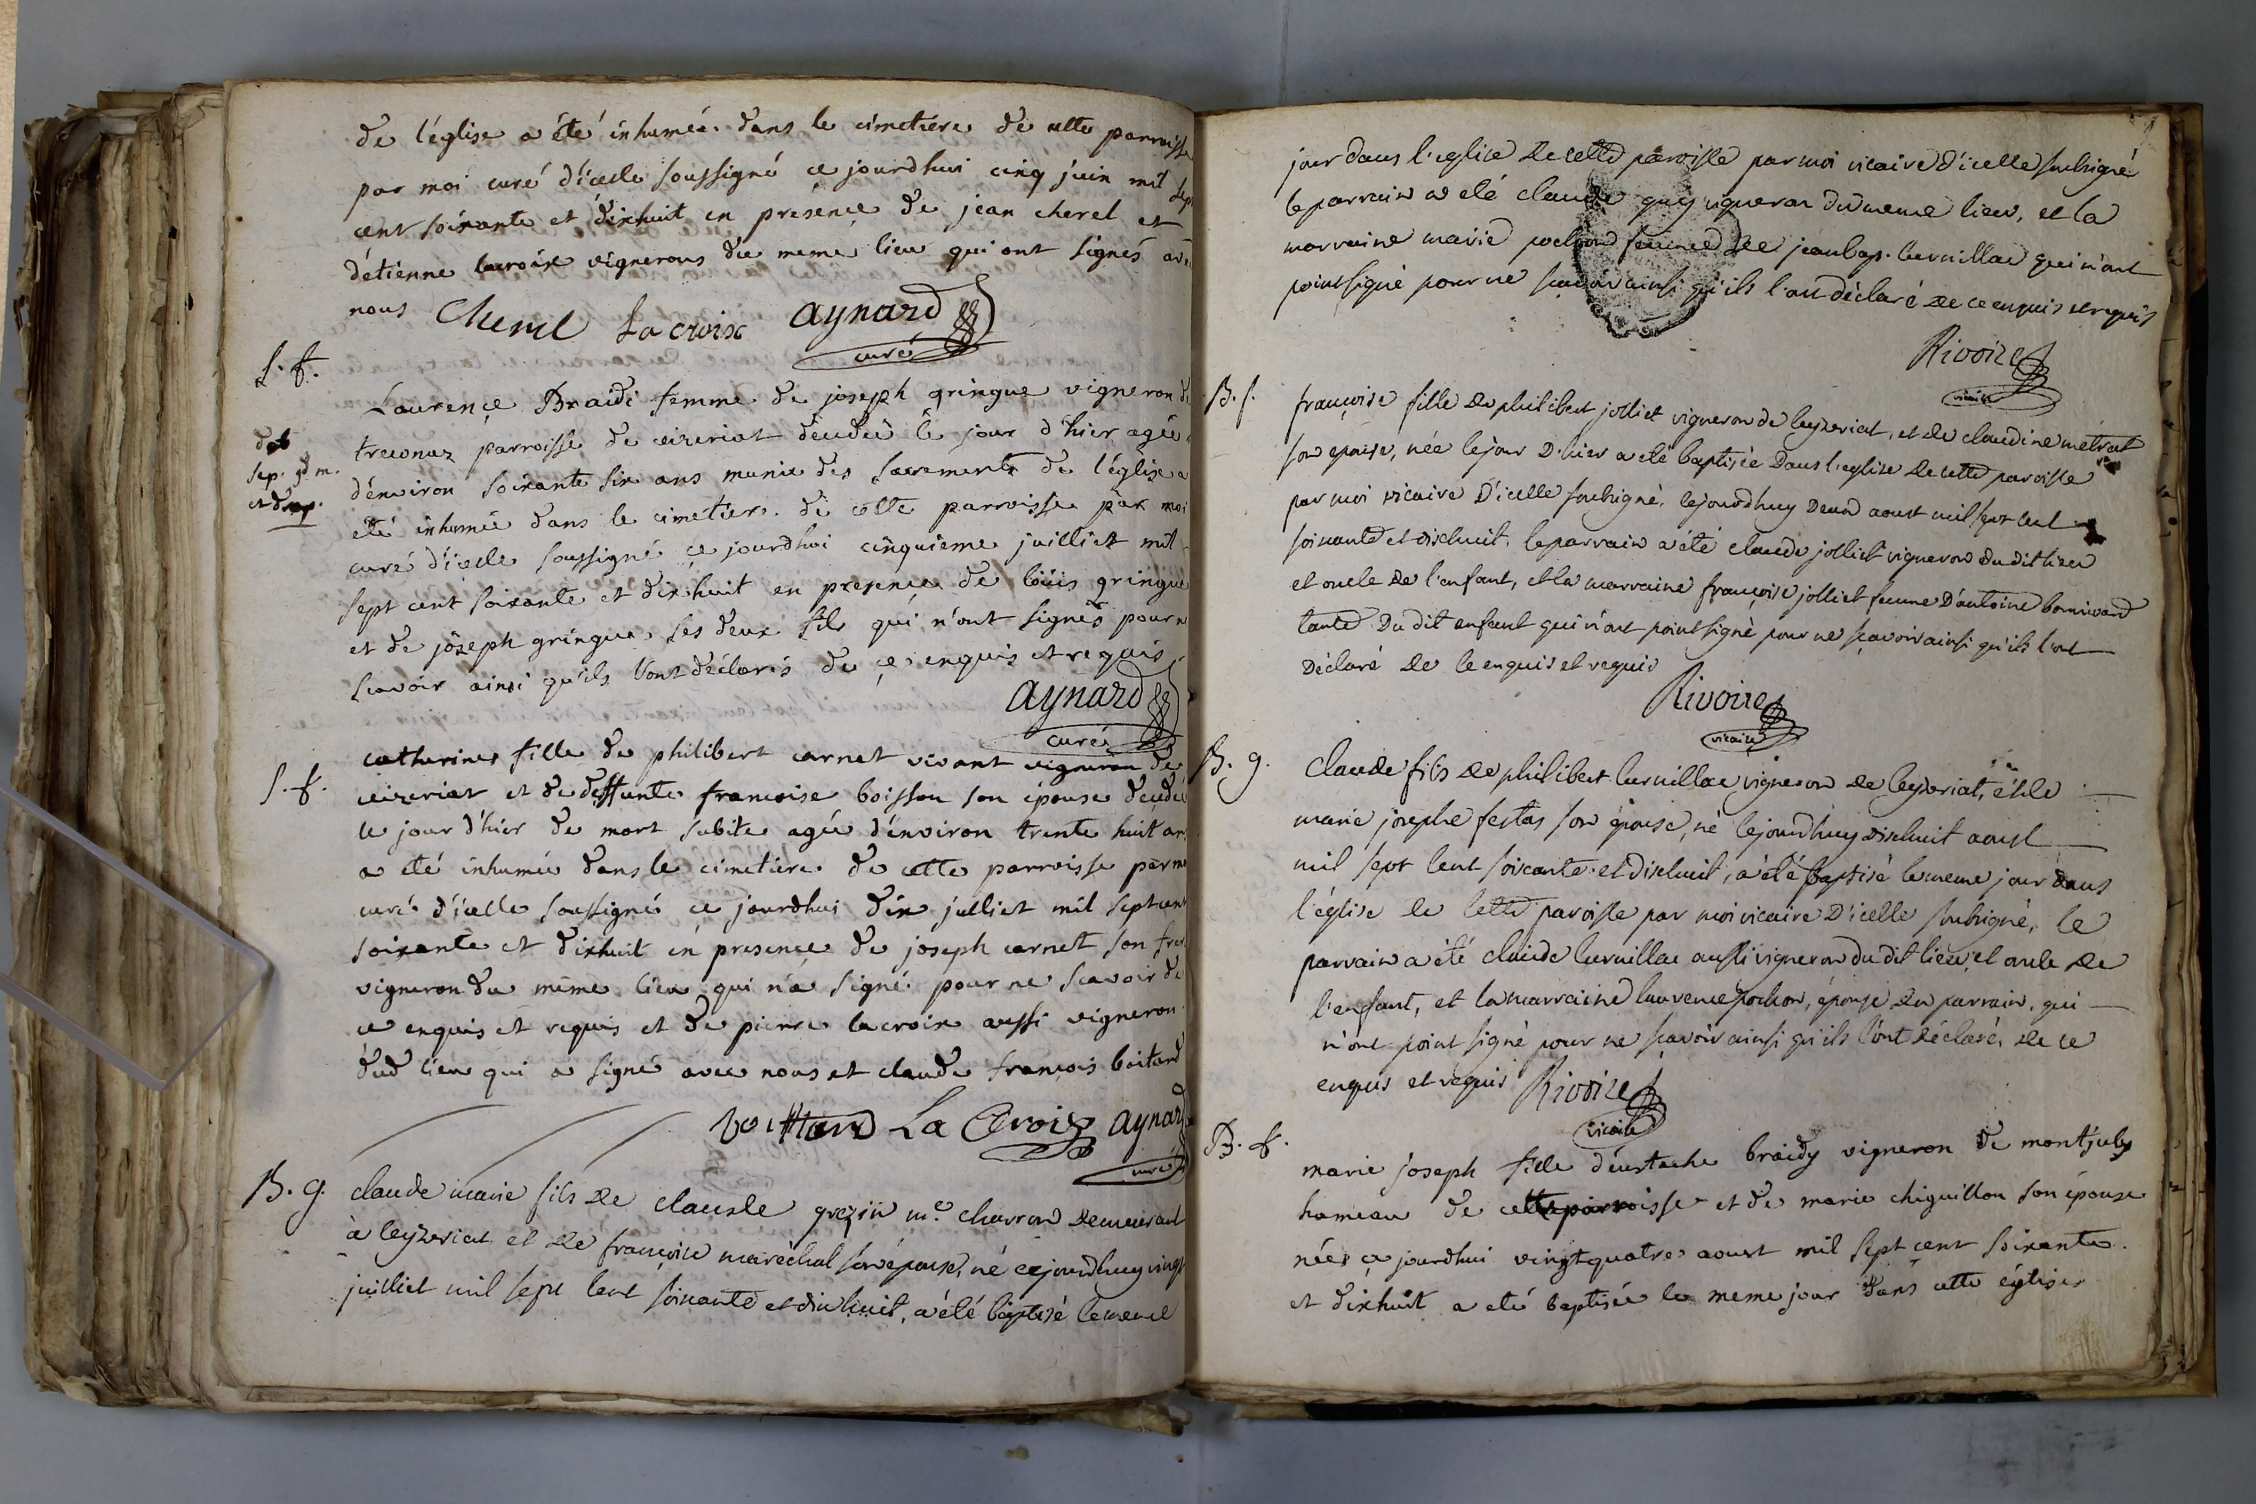 de l'église a été inhumée dans le cimetiere de cette parroisse
par moi curé d'icelle soussigné ce jourdhui cinq juin mil sept
cent soixante et dixhuit en presence de jean cherel et
détienne lacroix vignerons du meme lieu qui ont signés avec
nous Cherel La croix aynard
curé
S. f.
Laurence Braidi femme de joseph gringue vigneron de
parroisse de ceizeriat décedée le jour d'hier agée
sep. g m.
d'environ soixante six ans munie des sacrements de l'église a
été inhumée dans le cimetiere de cette parroisse par moi
curé d'icelle soussigné ce jourdhui cinquieme juilliet mil
sept cent soixante et dixhuit en presence de loüis gringue
et de joseph gringue ses deux fils qui n'ont signés pour ne
scavoir ainsi qu'ils l'ont déclarés de ce enquis et requis
aynard
curé
S. f.
catherine fille de philibert carnet vivant vigneron de
ceizeriat et de deffunte francoise boisson son épouse decedée
le jour d'hier de mort subite agée d'environ trente huit ans
a été inhumée dans le cimetiere de cette parroisse par moi
curé d'icelle soussigné ce jourdhui dix julliet mil sept cent
soixante et dixhuit en presence de joseph carnet son frere
vigneron du même lieu qui n'a signé pour ne scavoir de
ce enquis et requis et de pierre lacroix aussi vigneron
dud lieu qui a signé avec nous et claude francois boitard
boittard La Croix aynard
curé
B. g.
claude marie fils de claude grezin me. charron demeurant
à ceyzeriat et de françoise maréchal son épouse, né cejourdhuy vingt
juilliet mil sept cent soixante et dixhuit, a été baptisé le meme
jour dans l'eglise de cette paroisse par moi vicaire d'icelle soubsigné
le parrain a été claude guy vigneron du meme lieu, et la
marraine marie pochon femme de jean bap. curuillac qui n'ont
point signé pour ne scavoir ainsi qu'ils l'ont déclaré de ce enquis et requis
Rivoire
vicaire
B. f.
françoise fille de philibert jolliet vigneron de ceyzeriat, et de claudine metrat
son epouse, née le jour d'hier a eté baptisée dans l'eglise de cette paroisse
par moi vicaire d'icelle soubsigné, cejourdhuy deux aoust mil sept cent
soixante et dixhuit, le parrain a été claude jolliet vigneron du dit lieu
et oncle de l'enfant, et la marraine françoise jolliet femme d'antoine bonnivard
tante du dit enfant qui n'ont point signé pour ne sçavoir ainsi qu'ils l'ont
déclaré de ce enquis et requis
Rivoire
vicaire
B. g.
Claude fils de philibert curuillac vigneron de ceyzeriat, et de
marie josephe festas son épouse, né cejourdhuy dixhuit aoust
mil sept cent soixante et dixhuit, a été baptisé le meme jour dans
l'église de cette paroisse par moi vicaire d'icelle soubsigné, le
parrain a été claude curuillac aussi vigneron du dit lieu, et oncle de
l'enfant, et la marraine laurence pochon, épouse du parrain, qui
n'ont point signé pour ne sçavoir ainsi qu'ils l'ont déclaré, de ce
enquis et requis Rivoire
vicaire
B. f.
marie joseph fille d'eustache braidy vigneron de montjuly
hameau de cette parroisse et de marie chiquillon son épouse
née ce jourdhui vingt quatre aoust mil sept cent soixante
et dixhuit a été baptisée le meme jour dans cette église